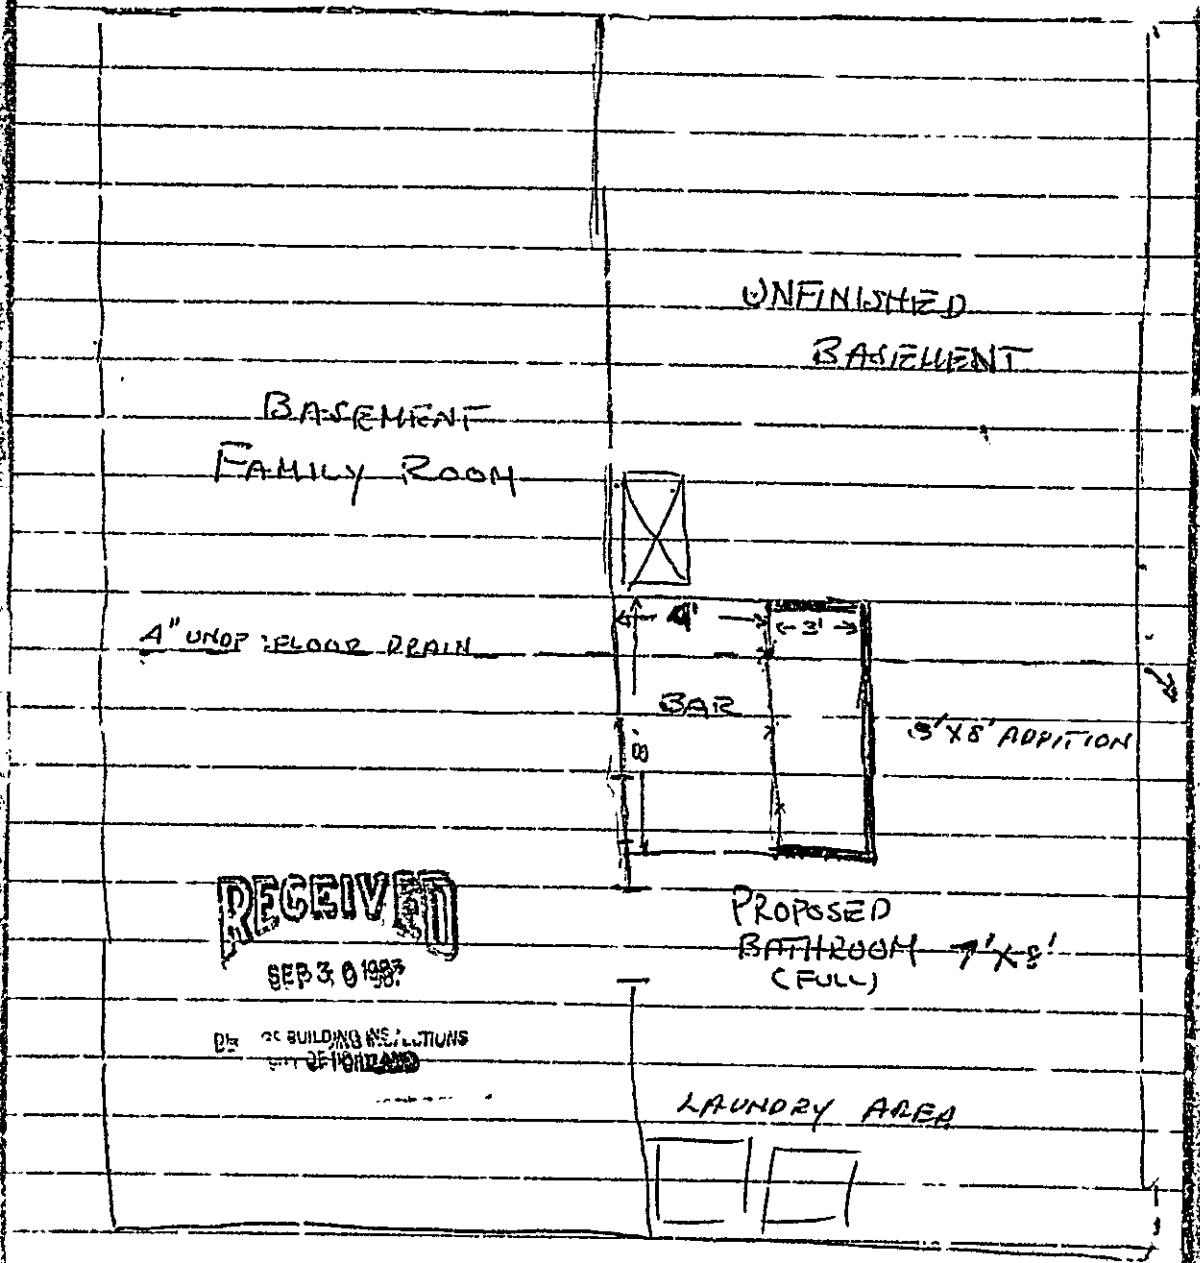 UNFINISHED
BASEMENT
BASEMENT
FAMILY ROOM
4'
3'
4" UNDER FLOOR DRAIN
BAR
8'
3'X8' ADDITION
RECEIVED
SEP 30 1993
BUILDING INSPECTIONS
CITY OF PORTLAND
PROPOSED
BATHROOM 7'X8'
(FULL)
LAUNDRY AREA